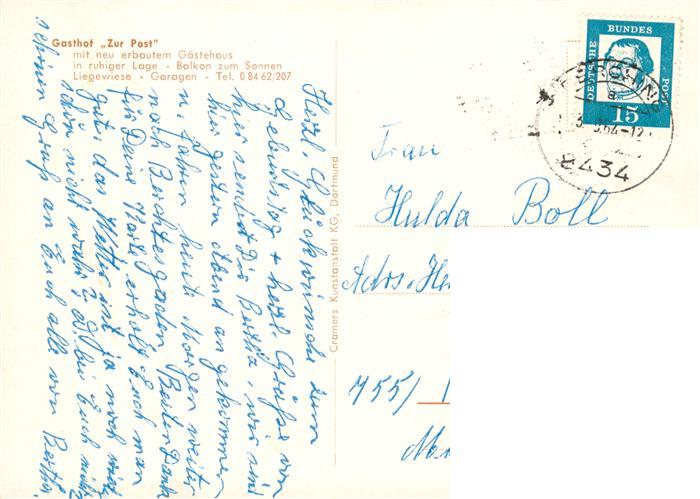 Gasthof „Zur Post"
mit neu erbautem Gästehaus
in ruhiger Lage - Balkon zum Sonnen
Liegewiese - Garagen - Tel. 0 84 62/207
Herzl. Glückwünsche zum
Geburtstag + herzl. Grüße von
hier sendet Dir Bertha, wir sind
hier gestern Abend angekommen
u. fahren heute Morgen weiter
nach Berchtesgaden
für Deine Karte erholt Euch man
gut, das Wetter ist ja noch nicht
schön nicht wahr? Ob bei Euch
Gruß an Euch alle von Bertha
Cramers Kunstanstalt KG, Dortmund
DEUTSCHE BUNDES POST
15
8434
Frau
Hulda Boll
Adrs. He
755/